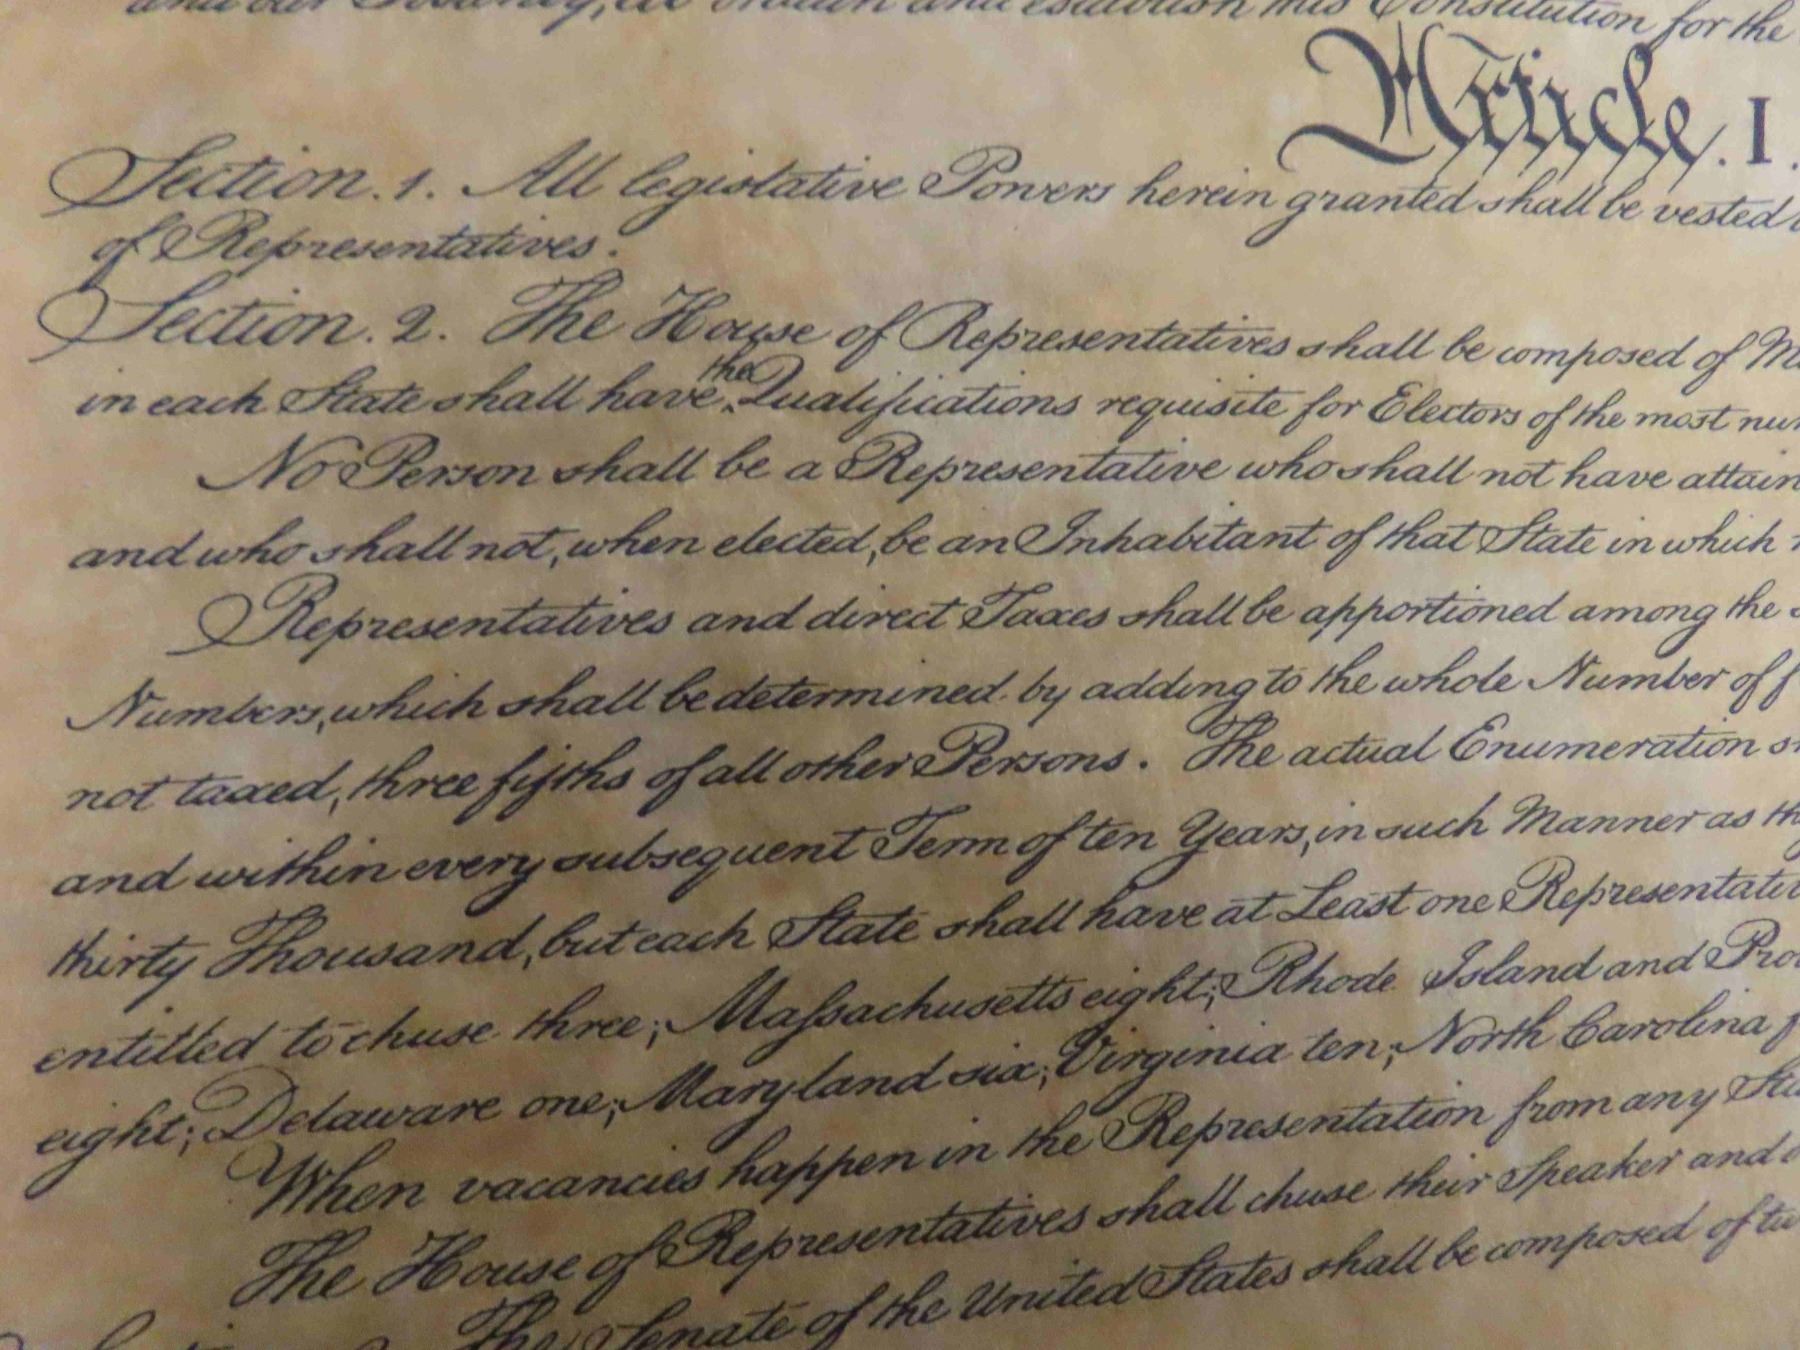 and our Posterity, do ordain and establish this Constitution for the
Article. I.
Section. 1. All legislative Powers herein granted shall be vested
of Representatives.
Section. 2. The House of Representatives shall be composed of M
the
in each State shall have Qualifications requisite for Electors of the most nu
No Person shall be a Representative who shall not have attain
and who shall not, when elected, be an Inhabitant of that State in which
Representatives and direct Taxes shall be apportioned among the
Numbers, which shall be determined by adding to the whole Number of f
not taxed, three fifths of all other Persons. The actual Enumeration s
and within every subsequent Term of ten Years, in such Manner as th
thirty Thousand, but each State shall have at Least one Representati
entitled to chuse three; Maſsachusetts eight; Rhode Island and Pro
eight; Delaware one; Maryland six; Virginia ten; North Carolina f
When vacancies happen in the Representation from any Sta
The House of Representatives shall chuse their Speaker and o
The Senate of the United States shall be composed of tw